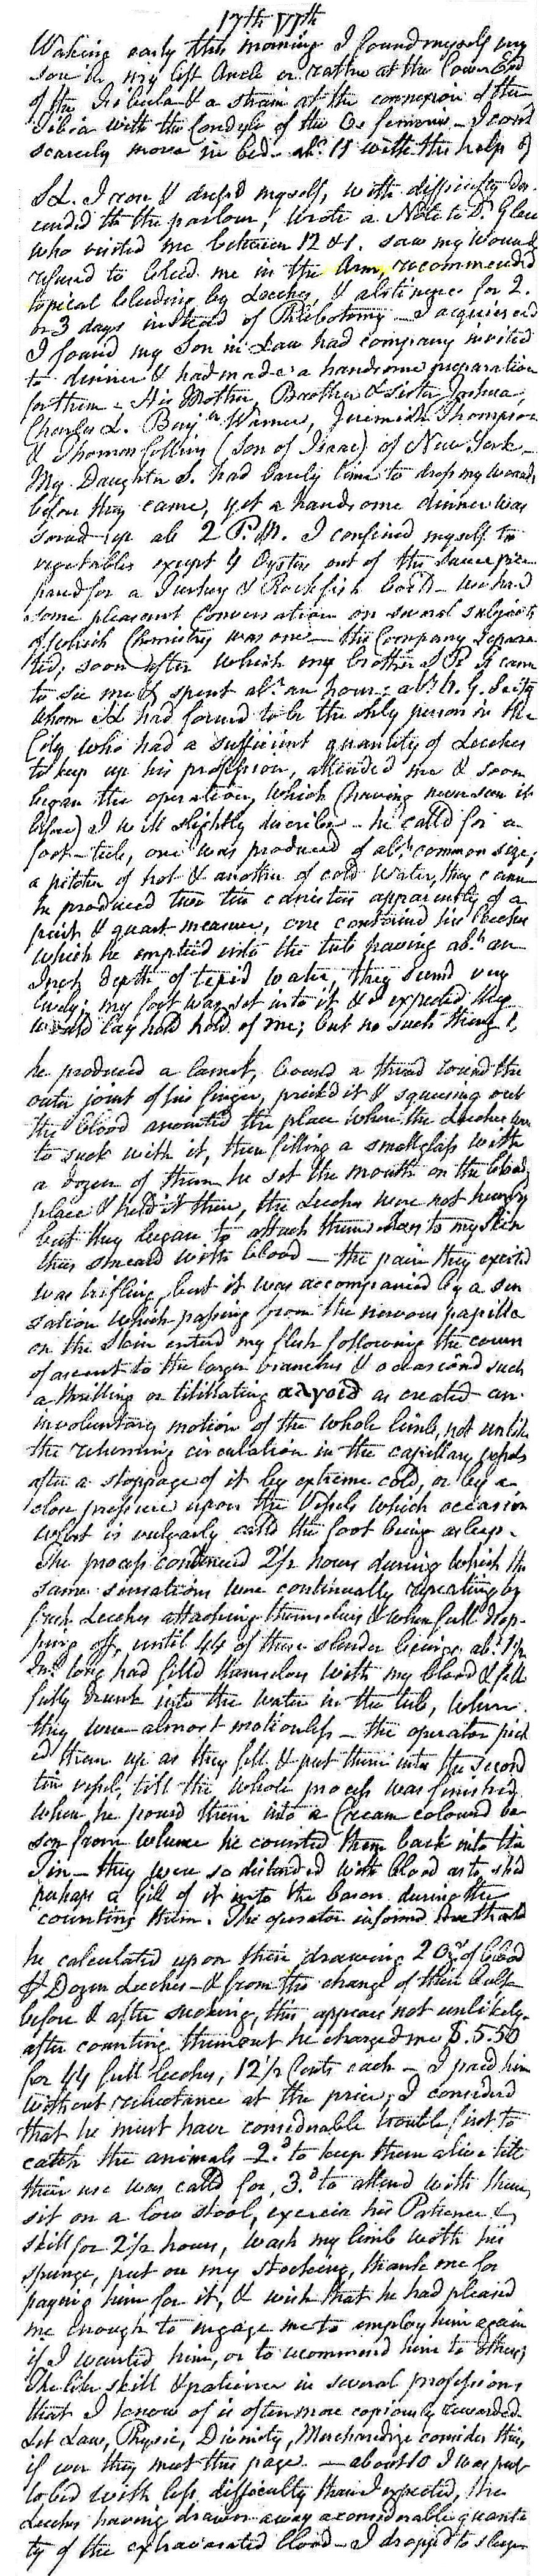 17th VIth
Waking early this morning I found myself very
sore in my left Ancle or rather at the lower End
of the Fibula & a strain at the connexion of the
Tibia with the Condyle of the Os femoris – I could
scarcely move in bed – abt. 11 with the help of
SL. I rose & dress'd myself, with difficulty des-
cended to the parlour, wrote a Note to Dr.
who visited me between 12 & 1. saw my wound
refused to bleed me in the Arm, recommended
topical bleeding by Leeches, & abstinence for 2.
or 3 days instead of Phlebotomy – I acquiesced
I found my Son in Law had company invited
to dinner & had made a handsome preparation
for them – His Mother, Brother & Sister Joshua,
Charles L. Benjn. Warner, Jeremiah Thompson
& Thomas Collins (Son of Isaac) of New York –
My Daughter S. had barely time to dress my wound
before they came, yet a handsome dinner was
served up ab 2 P.M. I confined myself to
vegetables except 4 Oysters out of the sauce pre-
pared for a Turkey & Rockfish both – we had
some pleasant Conversation on several subjects
of which Chemistry was one – the Company separa
ted, soon after which my brother came
to see me & spent abt. an hour; abt.
whom SL had found to be the only person in the
City who had a sufficient quantity of Leeches
to keep up his profession, attended me & soon
began the operation, which (having never seen it
before) I will slightly describe – he calld for a
foot-tub, one was produced of abt. common size,
a pitcher of hot & another of cold Water, they came
he produced two tin canisters apparently of a
pint & quart measure, one contained his Leeches
which he emptied into the tub having abt. an
Inch depth of tepid water, they seemd very
lively; my foot was set into it & I expected they
would lay hold hold of me; but no such thing!,
he produced a lancet, bound a thread round the
outer joint of his finger, prickd it & squeezing out
the blood anointed the place where the Leeches were
to suck with it, then filling a small glass with
a dozen of them he set the mouth on the bloody
place & held it there, the Leeches were not hungry
but they began to attach themselves to my skin
thus smeard with blood – the pain they excited
was trifling, but it was accompanied by a sen
sation which passing from the nervous papillæ
on the skin enterd my flesh following the course
of ascent to the larger branches & occasiond such
a thrilling or titillating as created an
involuntary motion of the whole limb, not unlike
the returning circulation in the capillary vessels
after a stoppage of it by extreme cold, or by a
close pressure upon the Vessels which occasion
what is vulgarly calld the foot being asleep –
The process continued 2 1/2 hours during which the
same sensations were continually repeating by
fresh Leeches attaching themselves & when full drop-
ping off, until 44 of these slender beings abt. 1 1/2
In. long had filld themselves with my blood & fell
fully drunk into the water in the tub, where
they were almost motionless – the operator pick
ed them up as they fell & put them into the second
tin vessel, till the whole process was finished
when he pourd them into a Cream coloured ba
son from whence he counted them back into the
Tin – they were so distended with blood as to shed
perhaps a Gill of it into the bason during the
counting them. The operator informd me that
he calculated upon their drawing 2 Ozs. of blood
Dozen Leeches – & from the change of their bulk
before & after sucking, this appears not unlikely –
after counting them out he charged me $.5.50
for 44 full leeches, 12 1/2 Cents each – I paid him
without reluctance at the price; I considerd
that he must have considerable trouble first to
catch the animals – 2.d to keep them alive till
their use was calld for, 3.d to attend with them,
sit on a low stool, exercise his Patience &
skill for 2 1/2 hours, wash my limb with his
spunge, put on my stocking, thank me for
paying him for it, & wish that he had pleased
me enough to engage me to employ him again
if I wanted him, or to recommend him to others;
The like skill & patience in several professions
that I know of is often more copiously rewarded.
Let Law, Physic, Divinity, Merchandize consider this,
if ever they meet this page. – about 10 I was put
to bed with less difficulty than I expected, the
Leeches having drawn away a considerable quanti
ty of the extravasated blood – I dropped to sleep